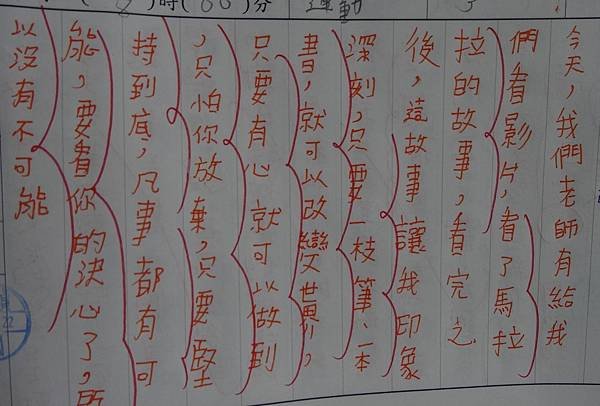 )時(00)分
運動
今天,我們老師有給我
們看影片,看了馬拉
拉的故事,看完之
後,這故事讓我印象
深刻,只要一枝筆、一本
書,就可以改變世界,
只要有心就可以做到
,只怕你放棄,只要堅
持到底,凡事都有可
能,要看你的決心了,所
以沒有不可能